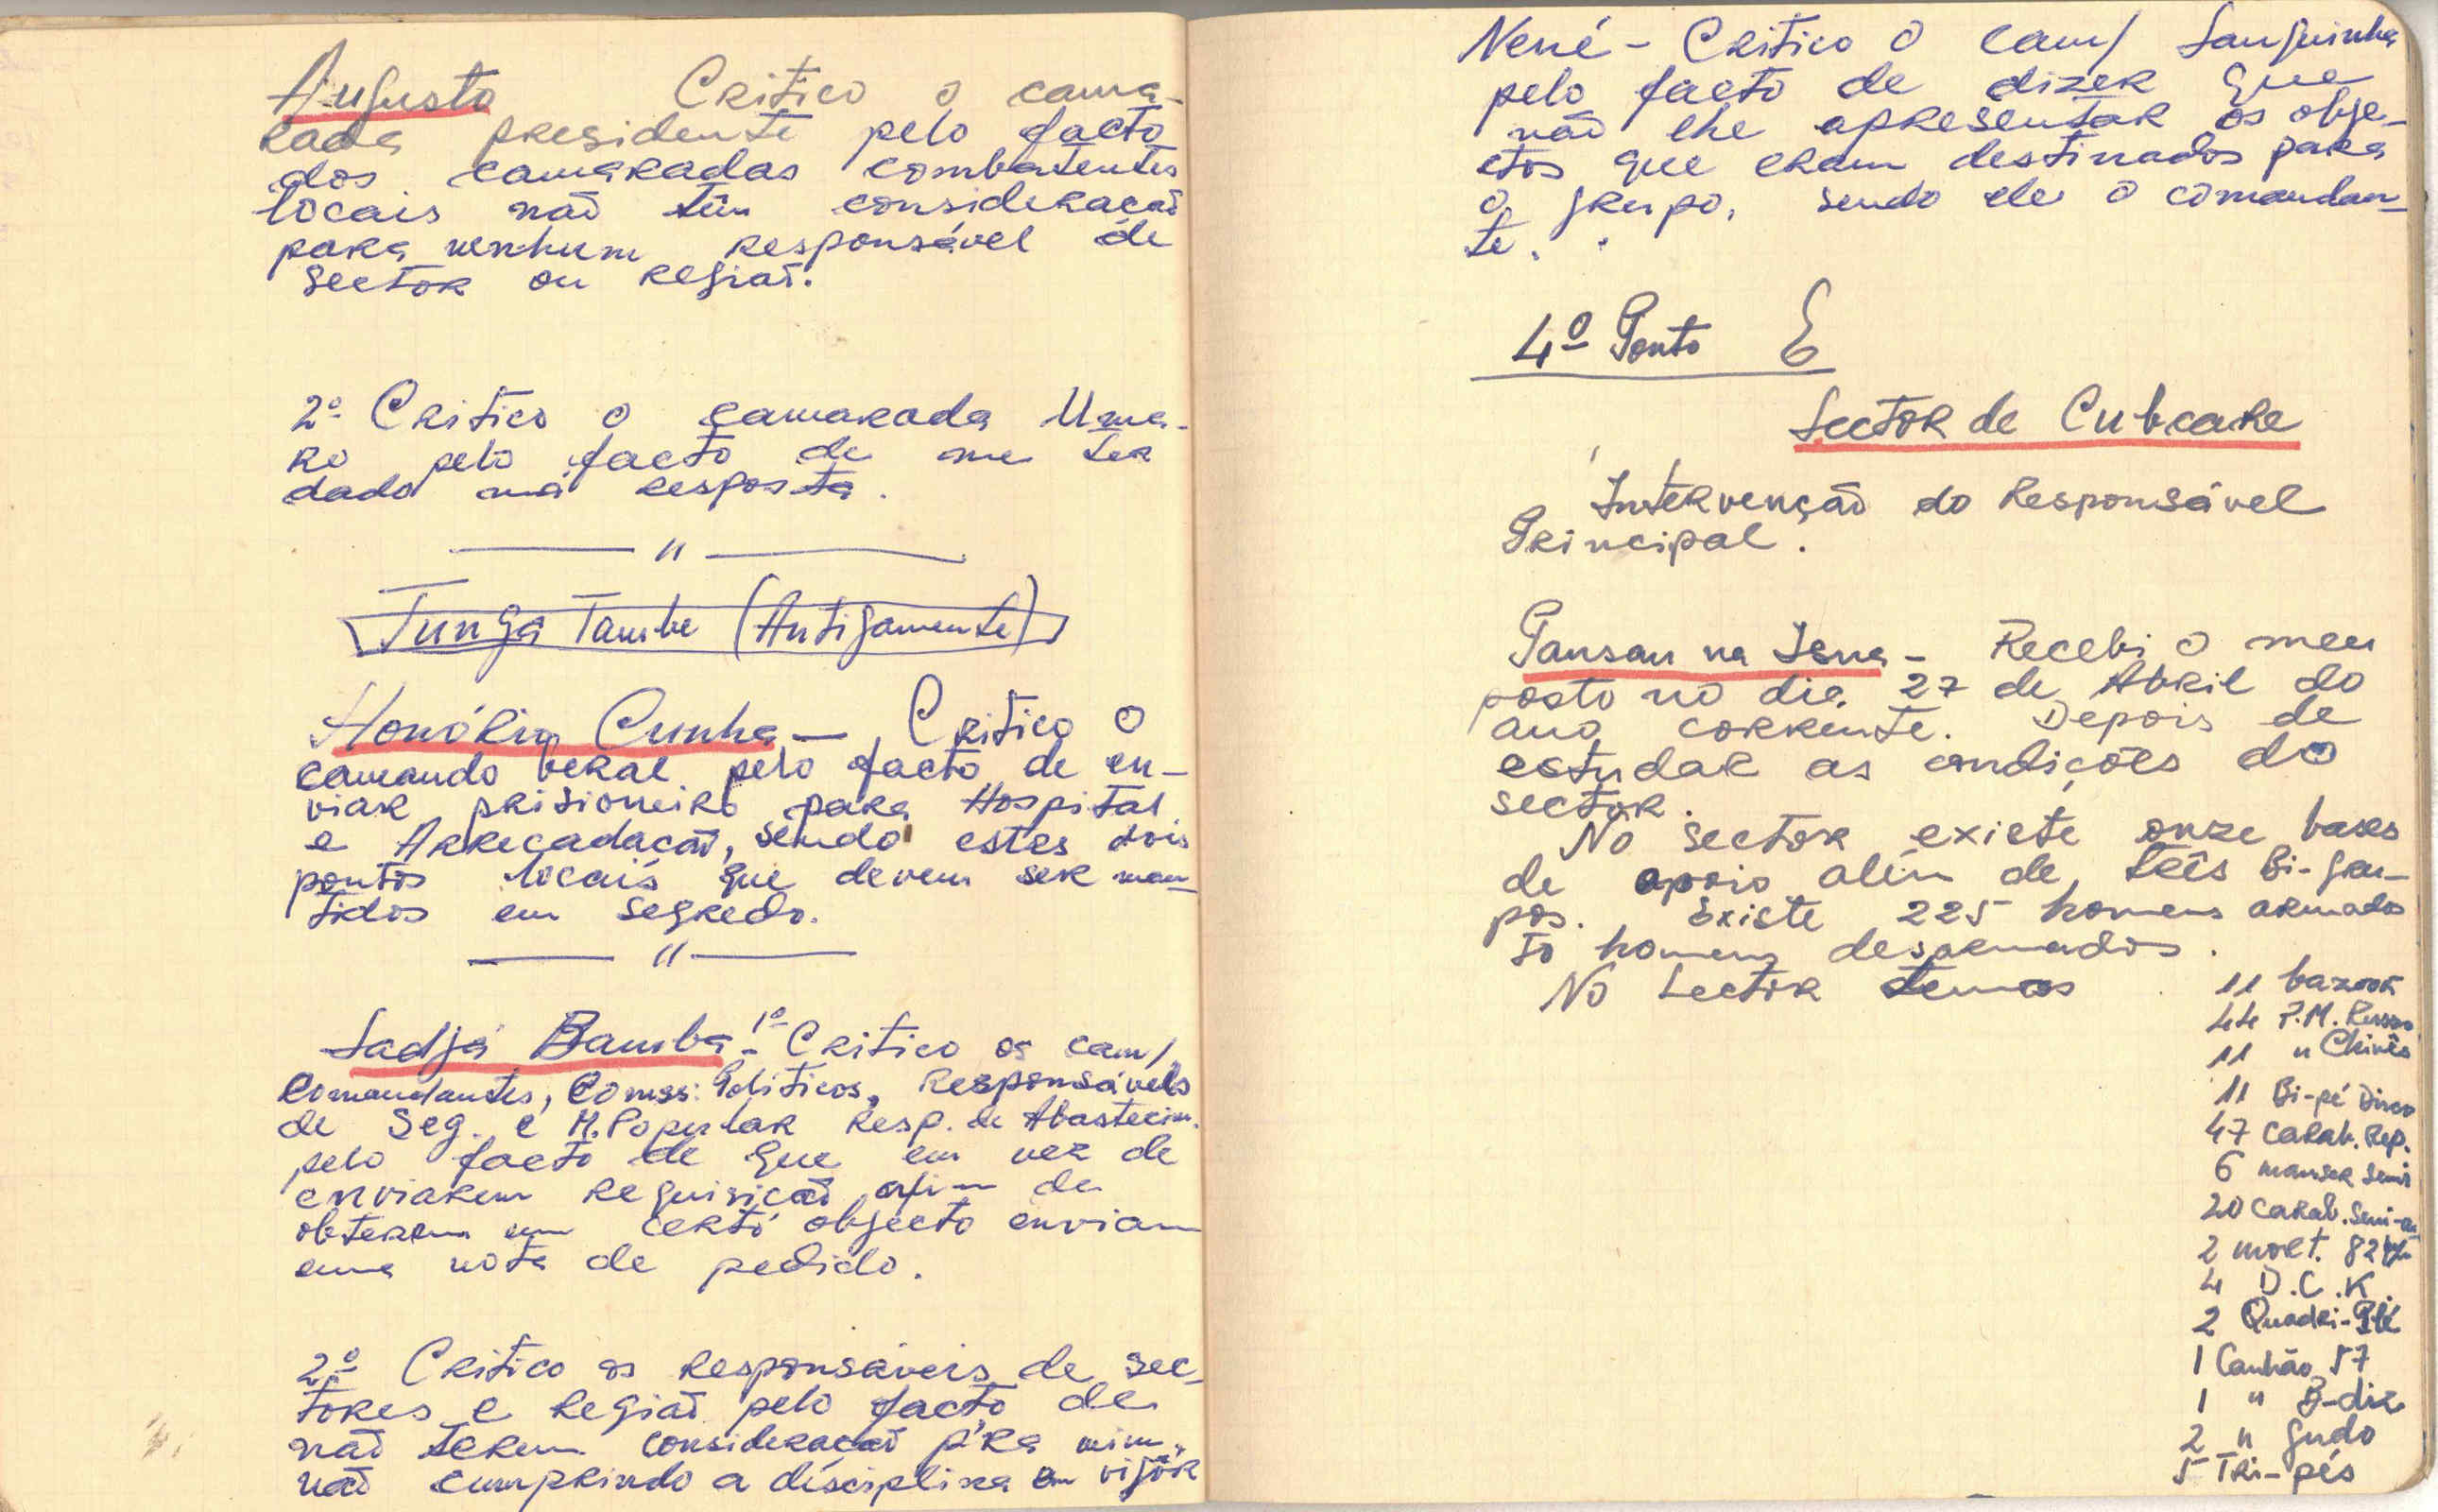 Augusto Critico o cama-
rada presidente pelo facto
dos camaradas combatentes
locais não têm consideracaõ
para nenhum responsável de
sector ou regiaõ.
2º Critico o camarada Uma-
ro pelo facto de me ter
dado má resposta.
— " —
Tunga Tambe (Antigamente)
Honório Cunha — Critico o
comando Geral pelo facto de en-
viar prisioneiro para Hospital
e Arrecadacaõ, sendo estes dois
pontos locais que devem ser man-
tidos em segredo.
— " —
Sadjá Bamba - 1º Critico os cam/
Comandantes, Comss: Politicos, Responsávels
de Seg. e M. Popular Resp. de Abastecim.
pelo facto de que em vez de
enviarem requisicaõ afim de
obterem um certo objecto enviam
uma nota de pedido.
2º Critico os responsáveis de sec-
tores e Regiaõ pelo facto de
naõ terem consideracaõ p'ra mim,
naõ cumprindo a disciplina em vigôr
Nené - Critico o cam/ Sanguinha
pelo facto de dizer que
naõ lhe apresentar os obje-
ctos que eram destinados para
o grupo, sendo ele o comandan-
te.
4º Ponto E
Sector de Cubcare
Intervençaõ do Responsável
Principal.
Pansau na Isna - Recebi o meu
posto no dia 27 de Abril do
ano corrente. Depois de
estudar as condições do
sector.
No sector existe onze bases
de apoio além de três Bi-gru-
pos. Existe 225 homens armados
homens desarmados.
No Sector temos
11 bazook
44 P.M. Russo
11 " Chinês
11 Bi-pé Disco
47 Carab. Rep.
6 mauser Semi
20 Carab. Semi-a
2 mort. 82
4 D.C.K.
2 Quadri-Pé
1 Canhão 57
1 " B-diz
2 " Gudo
5 Tri-pés